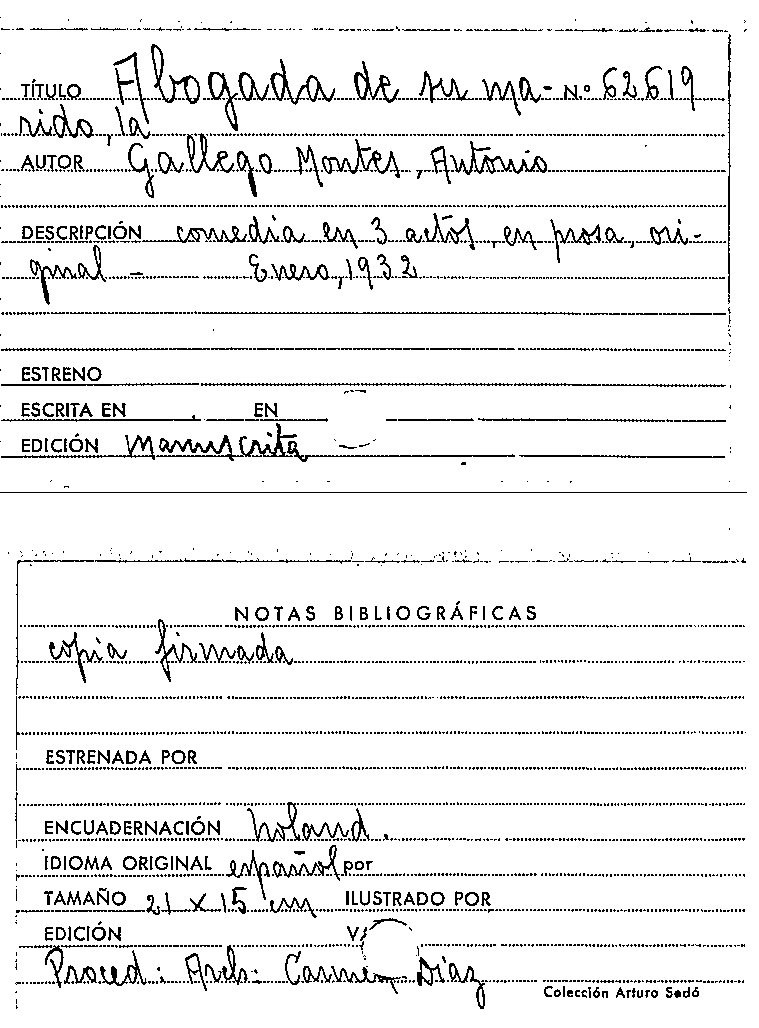 TÍTULO Abogada de su ma- N.º 62619
rido, la
AUTOR Gallego Montes, Antonio
DESCRIPCIÓN comedia en 3 actos, en prosa, ori-
ginal - Enero, 1932
ESTRENO
ESCRITA EN EN
EDICIÓN Manuscrita
NOTAS BIBLIOGRÁFICAS
copia firmada
ESTRENADA POR
ENCUADERNACIÓN holand.
IDIOMA ORIGINAL español por
TAMAÑO 21 x 15 cm ILUSTRADO POR
EDICIÓN
Proced: Arch: Carmen Díaz
Colección Arturo Sedó